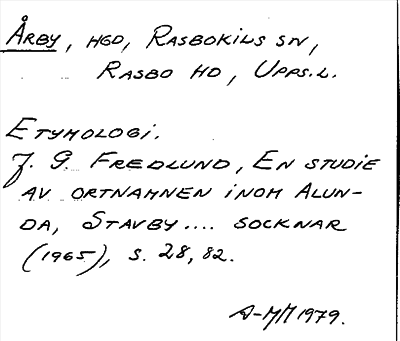 Årby, hgd, Rasbokils sn,
Rasbo hd, Upps.l.
Etymologi.
J. G. Fredlund, En studie
av ortnamnen inom Alun-
da, Stavby .... socknar
(1965), s. 28, 82.
A-MM 1979.